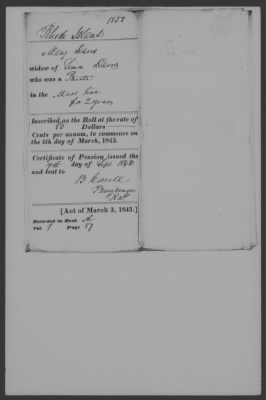 1857
Rhode Island
Mary Davis
widow of Simon Davis
who was a Private
in the Mass Line
for 2 years
Inscribed on the Roll at the rate of
80 Dollars
Cents per annum, to commence on
the 4th day of March, 1843.
Certificate of Pension issued the
day of Sept 1843
and sent to
B Cowell
Providence
R.I.
[Act of March 3, 1843.]
Recorded in Book A
Vol. 1 Page 57